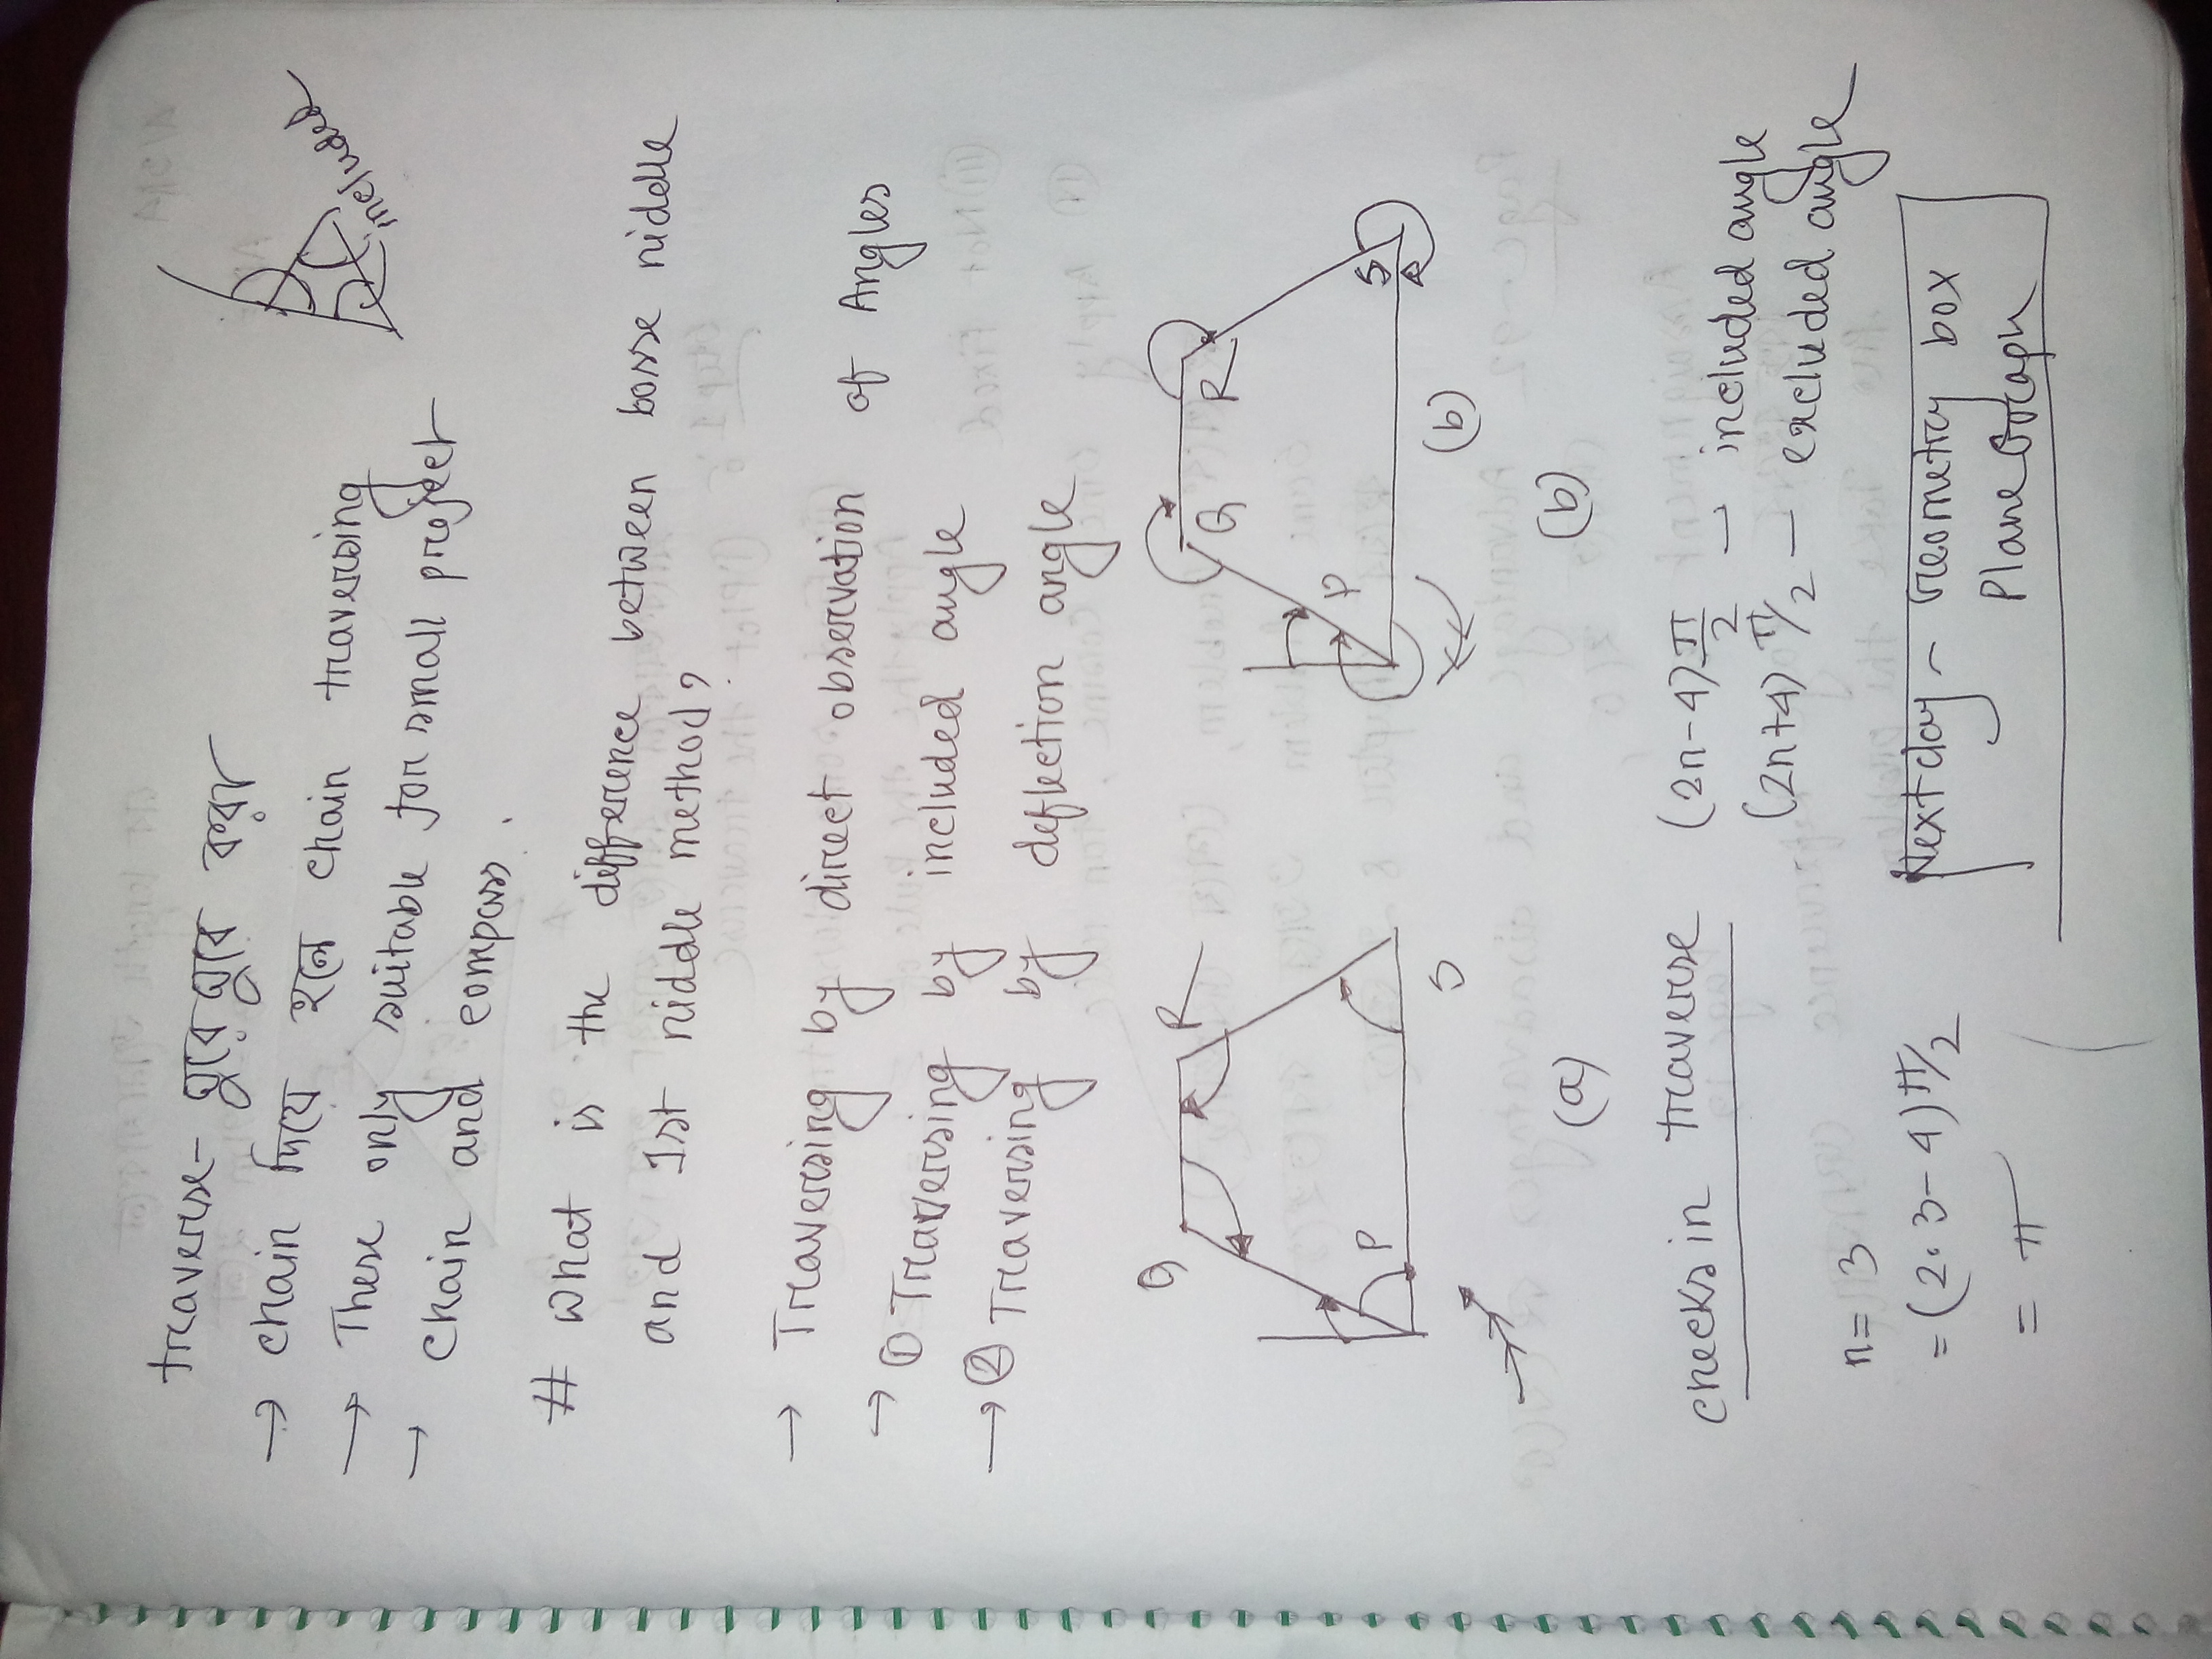 traverse- ঘুরে ঘুরে করা
→ chain দিয়ে হলে chain traversing
→ These only suitable for small project
→ chain and compass.
included
included
# what is the difference between bosse niddle
and 1st niddle method?
→ Traversing by direct observation of Angles
→ ① Traversing by included angle
→ ② Traversing by deflection angle
Q R
P S
(a)
Q R
P S
(b)
(b)
checks in traverse (2n-4) π/2 — included angle
(2n+4) π/2 — excluded angle
n = 3
= (2.3-4) π/2
= π
Next day - Geometry box
Plane Graph